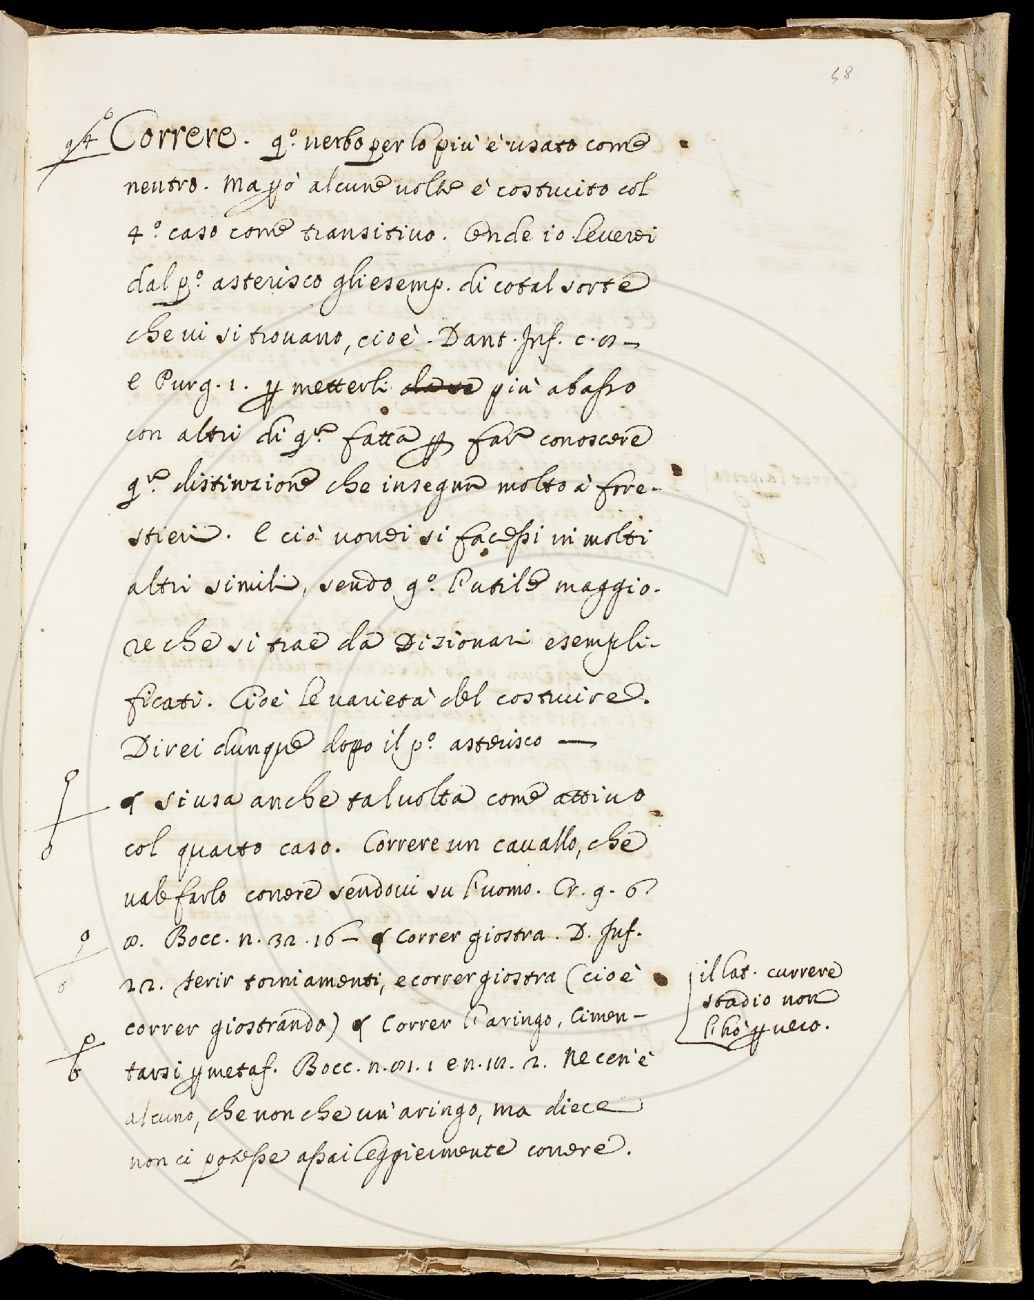 58
Correre. q.º verbo per lo più è usato come
neutro. Ma pò alcune volte è costruito col
4.º caso come transitivo. Onde io leverei
dal p.º asterisco gli esemp. di cotal sorte
che vi si trovano, cioè. Dant. Inf. c.
e Purg. 1. p metterli più abasso
con altri di q.ᵗᵃ fatta p far conoscere
q.ᵗᵃ distinzione che insegna molto a fore-
stieri. E ciò vorrei si facessi in molti
altri simili, sendo q.º l'utile maggio-
re che si trae da Dizionari esempli-
ficati. Cioè le varietà del costruire.
Direi dunque dopo il p.º asterisco —
¶ si usa anche talvolta come attivo
col quarto caso. Correre un cavallo, che
vale farlo correre sendovi su l'uomo. Cr. 9. 6?
Bocc. n. 32. 16 — ¶ Correr giostra. D. Inf.
22. ferir torniamenti, e correr giostra (cioè
correr giostrando) ¶ Correr l'aringo, Cimen-
tarsi p metaf. Bocc. n. 1 e n. 2. Ne cen'è
alcuno, che non che un'aringo, ma diece
non ci potesse assai leggiermente correre.
il lat. currere
stadio non
l'hò p vero.